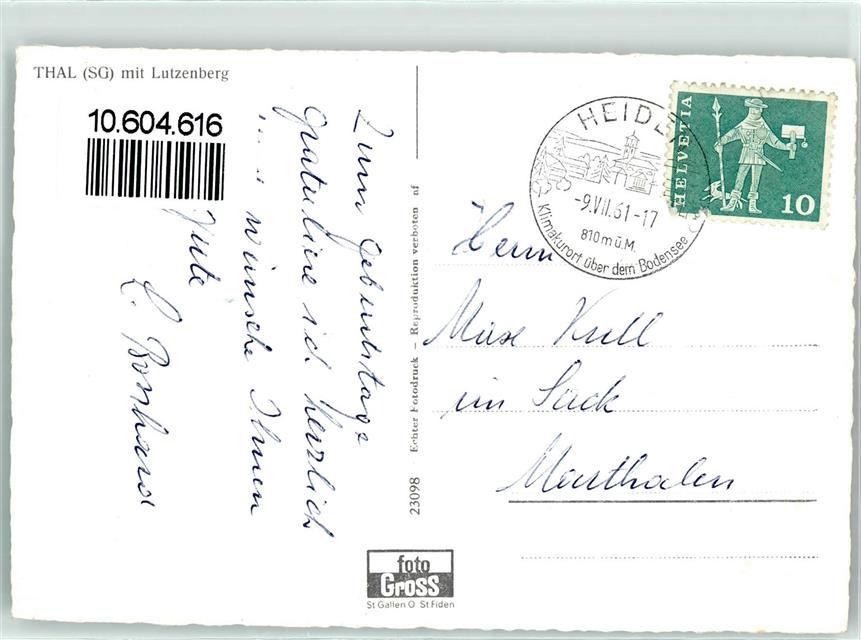 THAL (SG) mit Lutzenberg
10.604.616
Zum Geburtstage
gratuliere ich herzlich
wünsche Ihnen
Gute
L. Bonhard
23098 Echter Fotodruck – Reproduktion verboten nf
HEIDE
-9.VII.61-17
810 m ü.M.
Klimakurort über dem Bodensee
HELVETIA
10
Herrn
Max Krull
im Sack
Marthalen
foto
Gross
St Gallen O St.Fiden